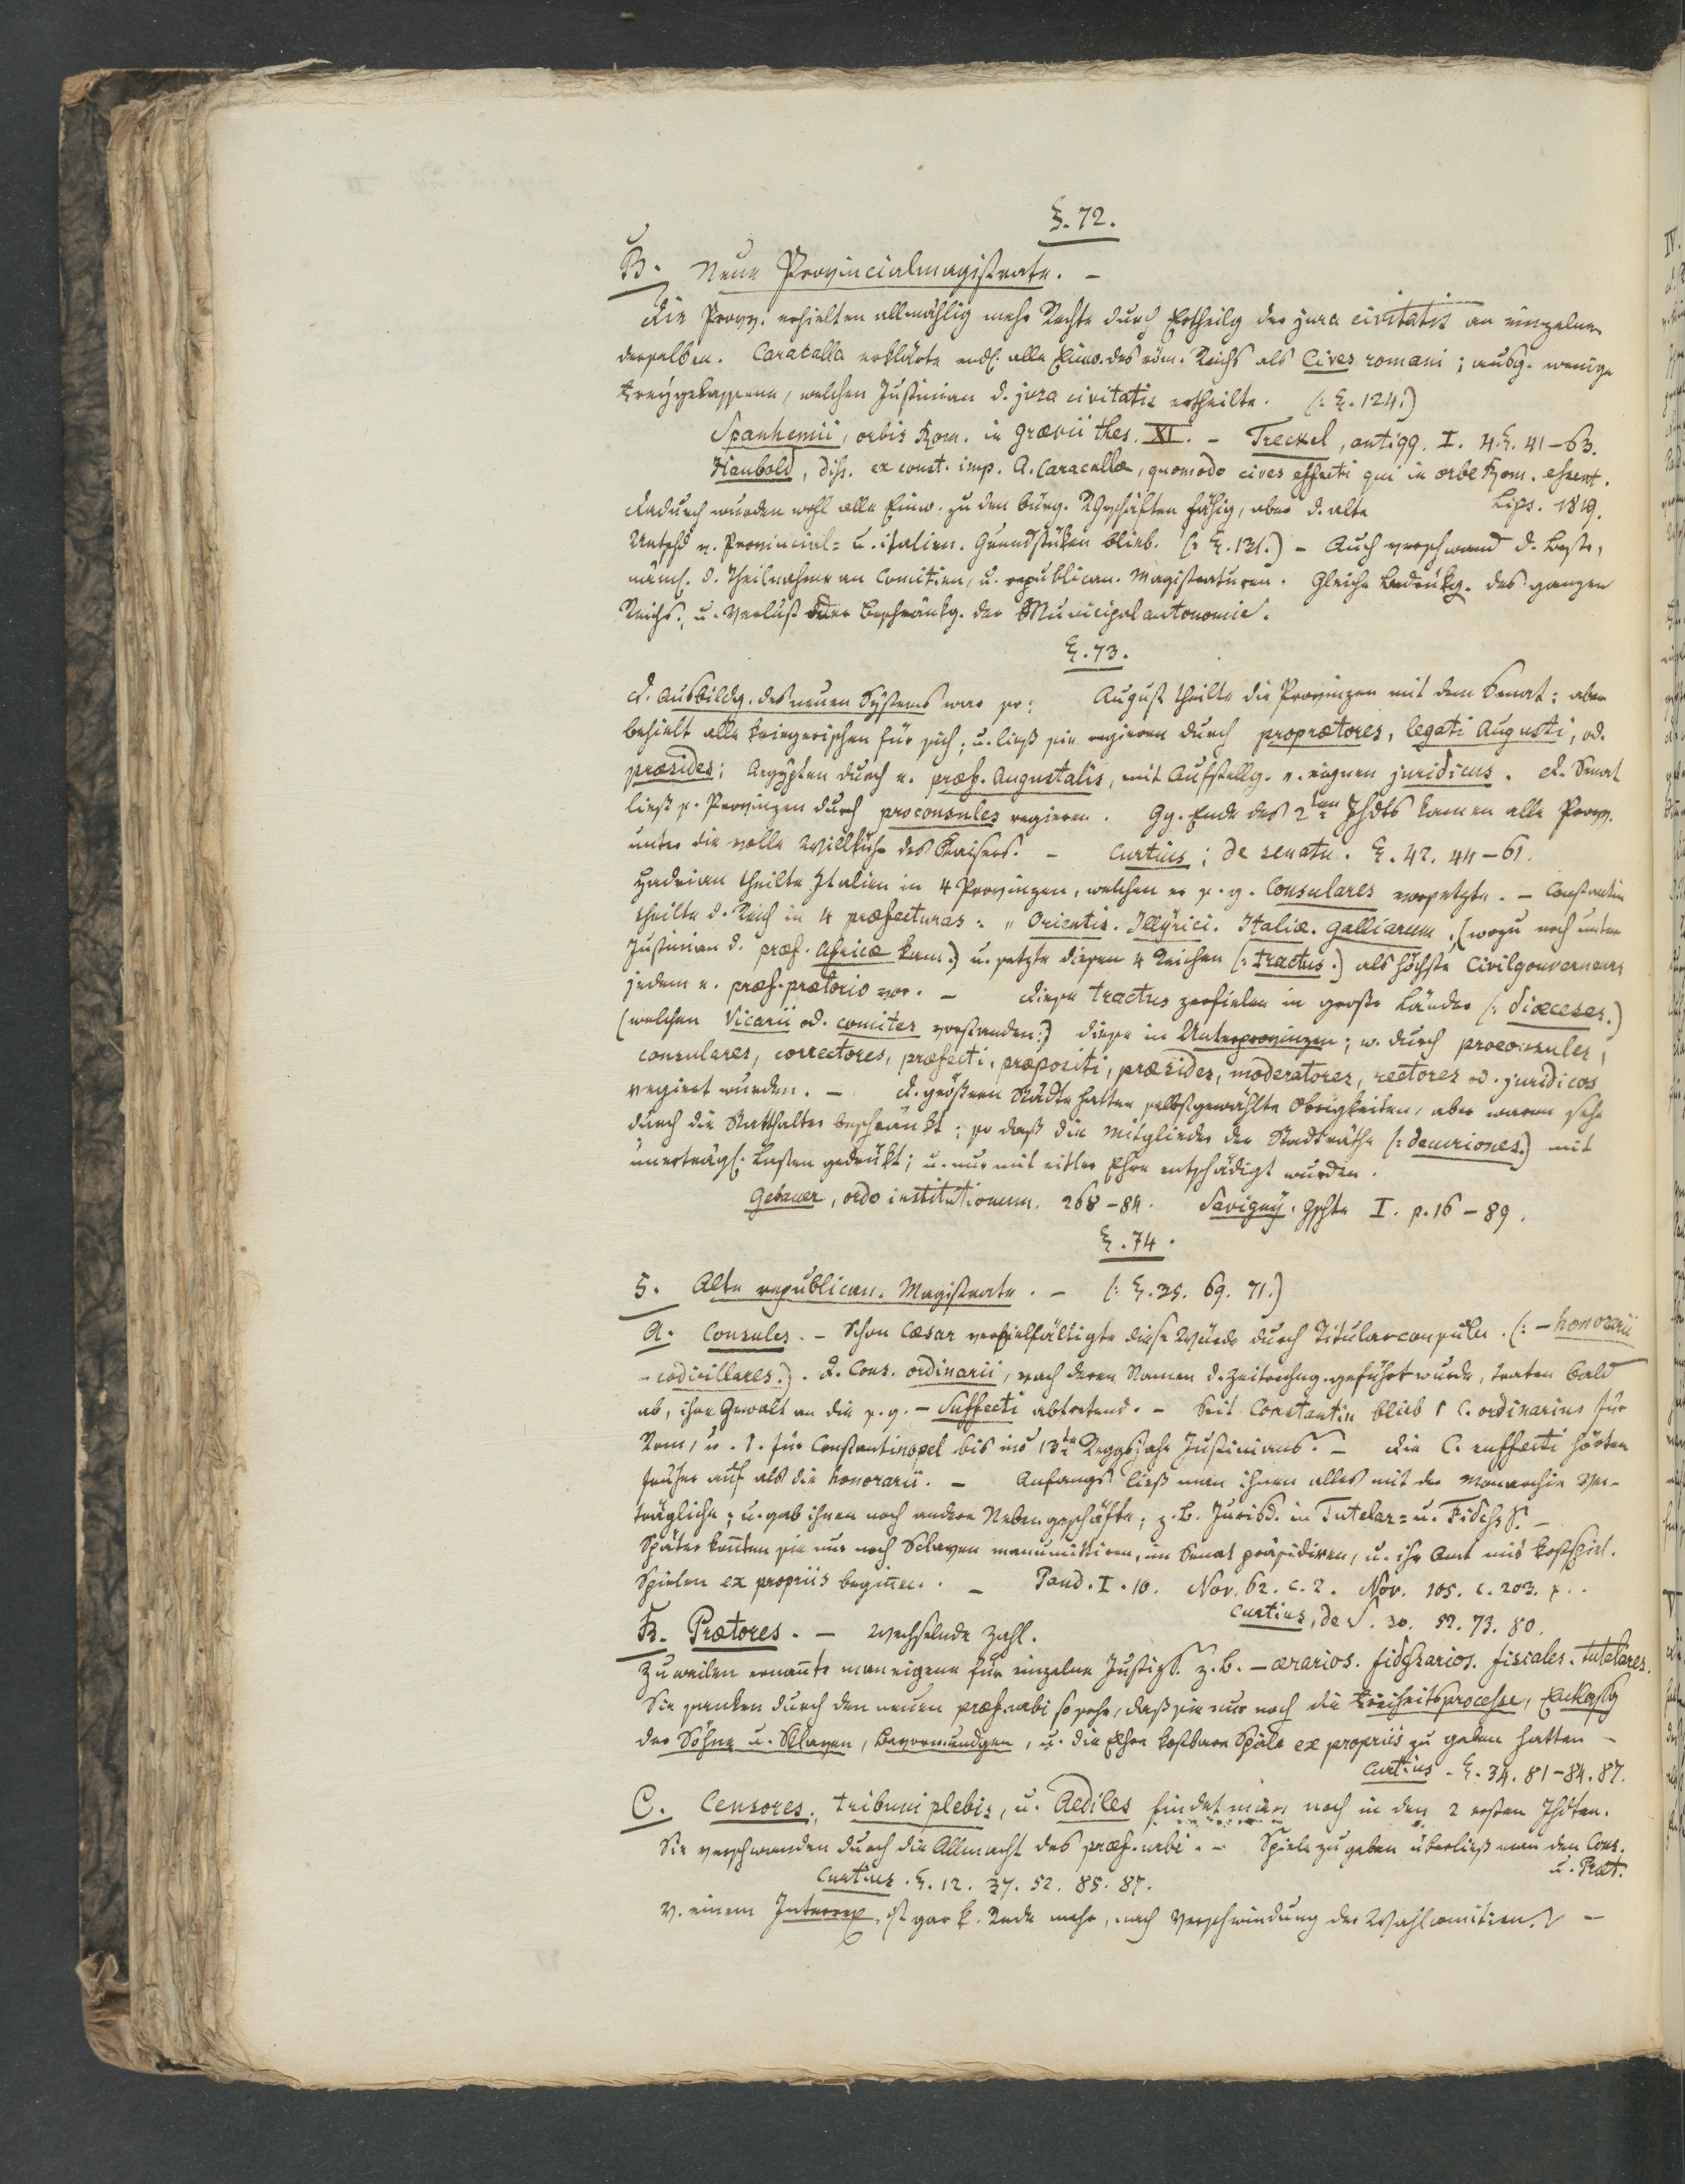 §. 72.
B. Neue Provincialmagistrate. –
Die Provv. erhielten allmählig mehr Rechte durch Ertheilg der jura civitatis an einzelne
derselben. Caracalla erklärte endl. alle Einw. des röm. Reichs als Cives romani; ausg. wenige
Freygelassene, welchen Justinian d. jura civitatis ertheilte. (: §. 124:)
Spanhemii, orbis Rom. in Grævii thes. XI. – Treckel, antiqq. I. 4. §. 41–63.
Haubold, diss. ex const. imp. A. Caracallæ, quomodo cives effecti qui in orbe Rom. essent.
Lips. 1819.
Dadurch wurden wohl alle Einw. zu den bürg. RGeschäften fähig, aber d. alte
Untschd v. Provincial= u. italien. Grundstüken blieb. (: §. 131.) – Auch verschwand d. Beste,
näml. d. Theilnahme an Comitien, u. republican. Magistraturen. Gleiche Bedrükg. des ganzen
Reichs., u. Verlust oder Beschränkg. der Municipalautonomie.
§. 73.
D. Ausbildg. des neuen Systems war so: August theilte die Provinzen mit dem Senat: aber
behielt alle kriegerischen für sich; u. ließ sie regieren durch proprætores, legati Augusti, od.
præsides; Aegypten durch e. præf. Augustalis, mit Aufstellg. e. eignen juridicus. D. Senat
ließ s. Provinzen durch proconsules regieren. Gg. Ende des 2ten Jhdts kamen alle Provv.
unter die volle Willkühr des Kaisers. – Curtius; de senatu. §. 42. 44–61.
Hadrian theilte Italien in 4 Provinzen, welchen er s. g. Consulares vorsetzte. – Constantin
theilte d. Reich in 4 præfecturas: " Orientis. Illÿrici. Italiæ. Galliarum. (wozu noch unter
Justinian d. præf. Africæ kam.) u. setzte diesen 4 Reichen (: tractus.) als höchste Civilgouverneurs
jedem e. præf. prætorio vor. – Diese tractus zerfielen in große Länder (: diœceses.)
(welchen Vicarii od. comites vorstanden:) diese in Unterprovinzen; w. durch proconsules,
consulares, correctores, præfecti, præpositi, præsides, moderatores, rectores od. juridicos
regiert wurden. – D. größern Städte hatten selbstgewählte Obrigkeiten, aber waren sehr
durch die Statthalter beschränkt; so daß die Mitglieder der Stadträthe (: decuriones.) mit
unerträgl. Lasten gedrükt; u. nur mit eitler Ehre entschädigt wurden.
Gebauer, ordo institutionum. 268–84. Savigny. Gschte I. p. 16–89.
§. 74.
5. Alte republican. Magistrate. – (: §. 35. 69. 71.)
A. Consules. – Schon Cæsar vervielfältigte diese Würde durch Titularconsuln. (: – honorarii
– codicillares.). D. Cons. ordinarii, nach deren Namen d. Zeitrechng. geführt wurde, traten bald
ab, ihre Gewalt an die s. g. – Suffecti abtretend. – Seit Constantin blieb 1 C. ordinarius für
Rom, u. 1. für Constantinopel bis ins 13te Reggsjahr Justinians. – Die C. suffecti hörten
früher auf als die honorarii. – Anfangs ließ man ihnen alles mit der Monarchie ver-
trägliche; u. gab ihnen noch andere Nebengeschäfte; z. B. Jurisd. in Tutelar= u. Fidchss. –
Später konnten sie nur noch Sclaven manumittiren, im Senat präsidiren, u. ihr Amt mit kostspiel.
Spielen ex propriis beginnen. – Pand. I. 10. Nov. 62. c. 2. Nov. 105. c. 203.
Curtius, de S. 30. 52. 73. 80.
B. Prætores. – Wechselnde Zahl.
Zuweilen ernannte man eigene für einzelne Justizs. z. B. – ærarios. fidchsarios. fiscales. tutelares.
Sie sanken durch den neuen præf. urbi so sehr, daß sie nur noch die Freiheitsprocesse, Entlassg
der Söhne u. Sklaven, Bevormundgen, u. die Ehre kostbare Spiele ex propriis zu geben hatten –
Curtius. §. 34. 81–84. 87.
C. Censores, tribuni plebis, u. Aediles findet man noch in den 2 ersten Jhdten.
Sie verschwanden durch die Allmacht des præf. urbi. – Spiele zu geben überließ man den Cons.
u. Præt.
Curtius. §. 12. 37. 52. 85. 87.
V. einem Interrex ist gar k. Rede mehr, nach Verschwindung der Wahlcomitien. –